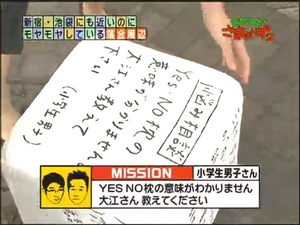 新宿・池袋にも近いのに
モヤモヤしている落合周辺
悩み相談
YES NO枕の
意味がわかりません
大江さん教えて
下さい
(小学生男子)
MISSION
小学生男子さん
YES NO枕の意味がわかりません
大江さん 教えてください